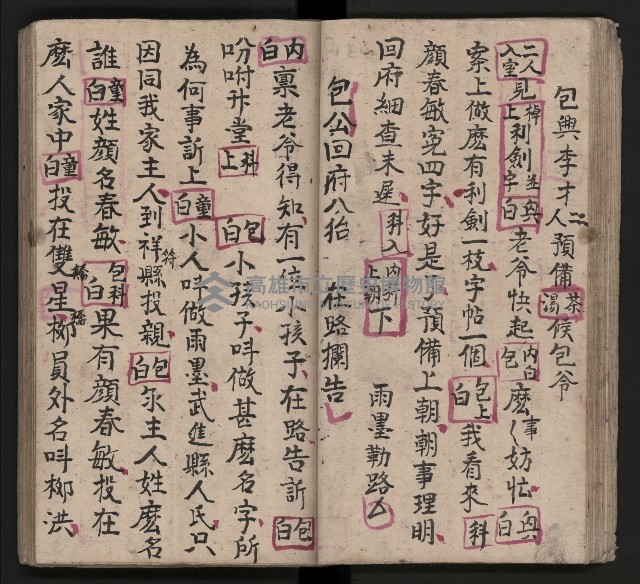 包興李才二人預備茶湯候包爷
二人入室見桌上利劍並字興白老爷快起內白包麽事麽〻妨忙興白
案上做麽有利劍一枝字帖一個包上白我看來科
顔春敏寃四字好是預備上朝朝事理明
回府細查未遲科入內科上朝下 雨墨勤路厶
包公回府八抬 在路攔告
內白禀老爷得知有一位小孩子在路告訴包白
吩咐升堂科上 包白小孩子呌做甚麽名字所
為何事訴上童白小人呌做雨墨武進縣人氏只
因同我家主人到祥符縣投親包白尔主人姓麽名
誰童白姓顔名春敏包科白果有顔春敏投在
麽人家中童白投在雙星橋柳員外名呌柳洪
高雄市立歷史博物館
KAOHSIUNG MUSEUM OF HISTORY